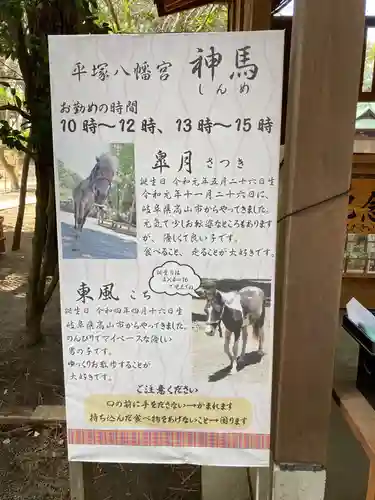 平塚八幡宮 神馬
しんめ
お勤めの時間
10時～12時、13時～15時
皐月 さつき
誕生日 令和元年五月二十六日生
令和元年十一月六日に、
岐阜県高山市からやってきました。
元気で少しお転婆なところもあります
が、優しくて良い子です。
食べること、走ることが大好きです。
東風 こち
誕生日は
誕生日 令和四年四月十六日生
岐阜県高山市からやってきました。
のんびりでマイペースな優しい
男の子です。
ゆっくりお散歩することが
大好きです。
ご注意ください
口の前に手を出さない→かまれます
持ち込んだ食べ物をあげない→困ります
念